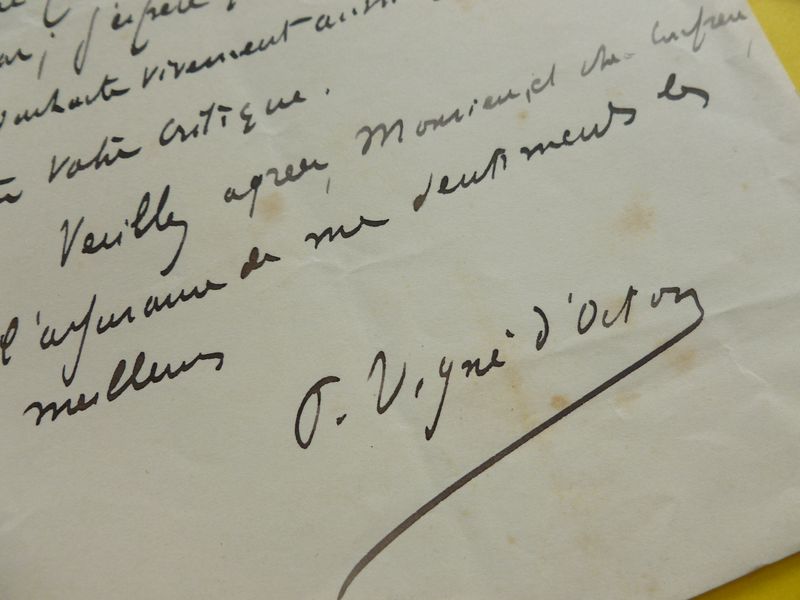 j'espère
souhaite vivement aussi
votre critique.
Veuillez agréer, Monsieur et cher Confrère,
l'assurance de mes sentiments les
meilleurs
P. Vigné d'Octon